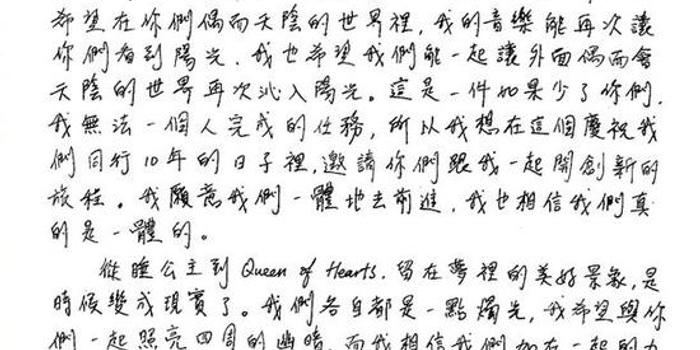 希望在你們偶而天陰的世界裡，我的音樂能再次讓
你們看到陽光，我也希望我們能一起讓外面偶而會
天陰的世界再次沁入陽光。這是一件如果少了你們，
我無法一個人完成的任務，所以我想在這個慶祝我
們同行10年的日子裡，邀請你們跟我一起開創新的
旅程。我願意我們一體地去前進，我也相信我們真
的是一體的。
從睡公主到Queen of Hearts，留在夢裡的美好景象，是
時候變成現實了。我們各自都是一點燭光，我希望與你
們一起照亮四周的幽暗，而我相信我們加在一起的力